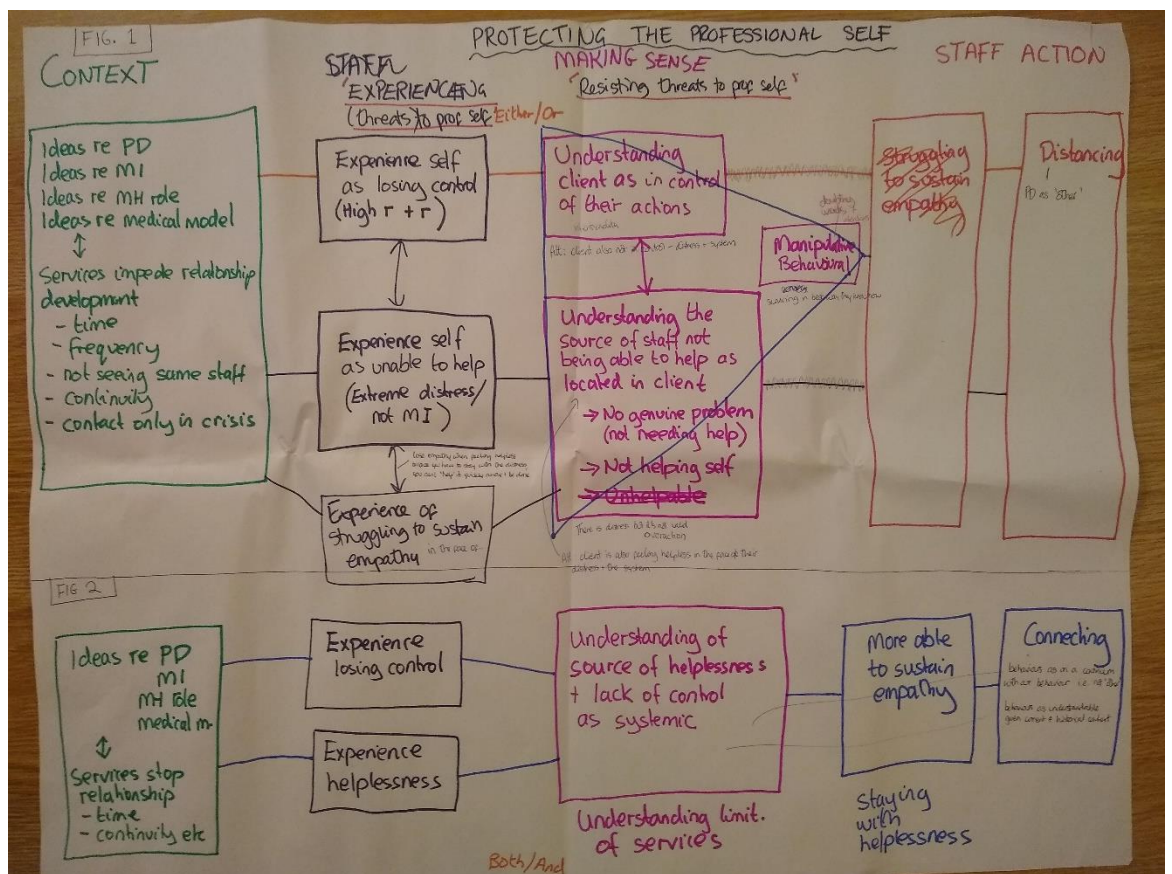 FIG. 1
PROTECTING THE PROFESSIONAL SELF
CONTEXT
STAFF
"EXPERIENCING
(threats) to prof self"
Either/Or
MAKING SENSE
"Resisting threats to prof self"
STAFF ACTION
Ideas re PD
Ideas re MI
Ideas re MH role
Ideas re medical model
Services impede relationship
development
- time
- frequency
- not seeing same staff
- continuity
- contact only in crisis
Experience self
as losing control
(High r + r)
Experience self
as unable to help
(Extreme distress/
not MI)
Lose empathy when feeling helpless
Experience of
struggling to sustain
empathy
in the face of...
Understanding
client as in control
of their actions
Alt: client also not
distress + system
Understanding the
source of staff not
being able to help as
located in client
→ No genuine problem
(not needing help)
→ Not helping self
→ Unhelpable
There is distress but it's not valid
overreaction
Alt: client is also feeling helpless in the face of their
distress + the system
Manipulative
Behavioural
struggling
to sustain
empathy
Distancing
PD as 'other'
FIG 2
Ideas re PD
MI
MH role
medical m-
Services stop
relationship
- time
- continuity etc
Experience
losing control
Experience
helplessness
Both/And
Understanding of
source of helplessness
+ lack of control
as systemic
Understanding limit.
of services
More able
to sustain
empathy
Staying
with
helplessness
Connecting
behaviour as on a continuum
with our behaviour i.e. not 'other'
behaviour as understandable
given current + historical context